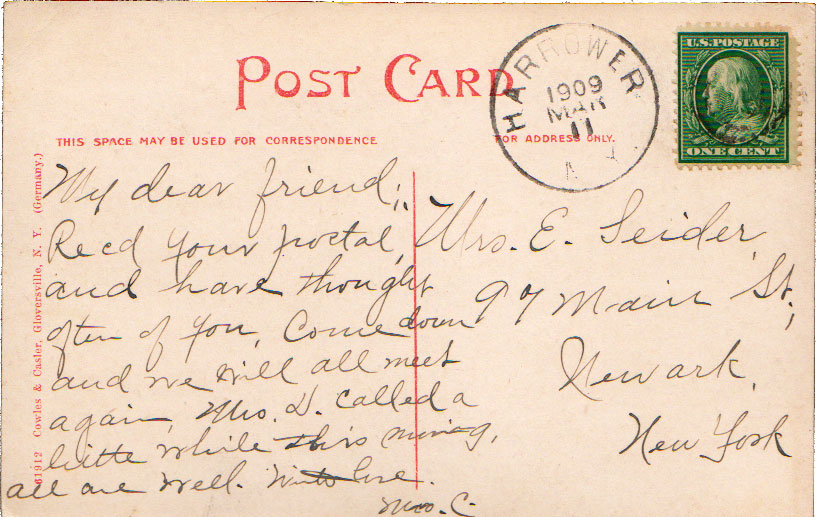 POST CARD
THIS SPACE MAY BE USED FOR CORRESPONDENCE
FOR ADDRESS ONLY.
HARROWER
1909
MAR
11
U.S. POSTAGE
ONE CENT
61912 Cowles & Casler, Gloversville, N. Y. (Germany.)
My dear friend;
Recd your postal,
and have thought
often of you, Come down
and we will all meet
again, Mrs. D. called a
little while this morning,
all are well. With love.
Mrs. C.
Mrs. E. Seider,
97 Main St.,
Newark,
New York